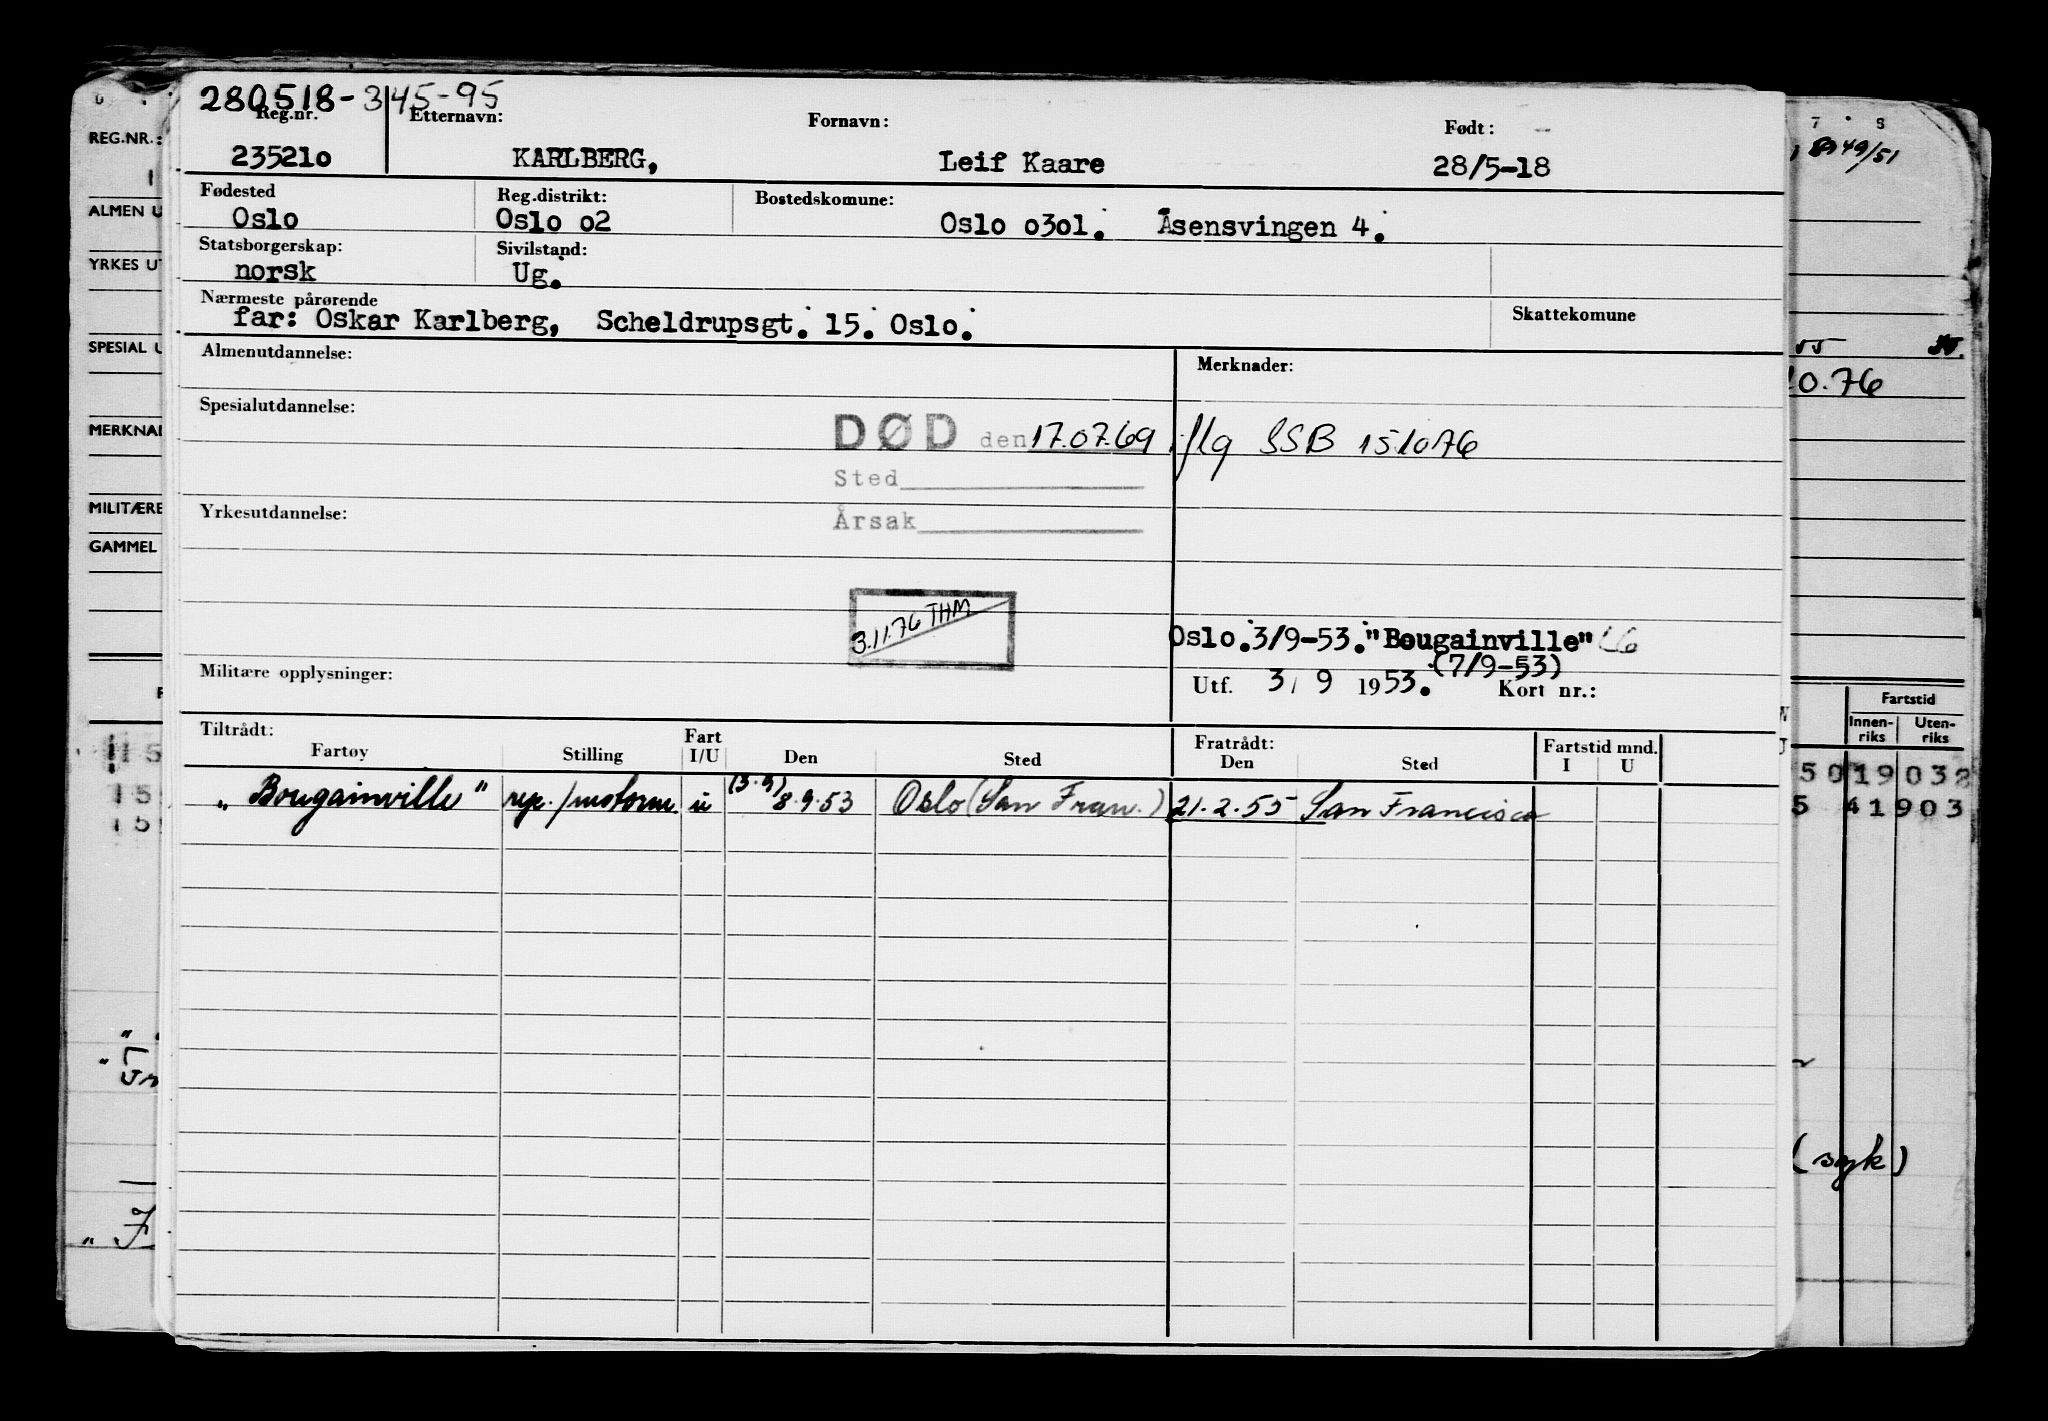 280518-345-95
Reg.nr. Etternavn: Fornavn: Født:
235210 KARLBERG, Leif Kaare 28/5-18
Fødested Reg.distrikt: Bostedskomune:
Oslo Oslo o2 Oslo o3ol. Åsensvingen 4.
Statsborgerskap: Sivilstand:
norsk Ug.
Nærmeste pårørende Skattekomune
far: Oskar Karlberg, Scheldrupsgt. 15. Oslo.
Almenutdannelse: Merknader:
Spesialutdannelse:
DØD den 17.07.69 iflg SSB 151076
Sted
Yrkesutdannelse: Årsak
3.11.76 THM
Oslo. 3/9-53. "Bougainville"
(7/9-53)
Militære opplysninger: Utf. 3/9 1953. Kort nr.:
Tiltrådt: Fratrådt:
Fartøy Stilling Fart I/U Den Sted Den Sted Fartstid mnd. I U
(3.9)
"Bougainville" rep./motorm. u 8.9.53 Oslo (San Fran.) 21.2.55 San Francisco
REG.NR.:
ALMEN U
YRKES UT
SPESIAL U
MERKNAD
MILITÆRE
GAMMEL
7 8
49/51
55
10.76
Fartstid
Innen-riks Uten-riks
5019032
5 41903
(syk)